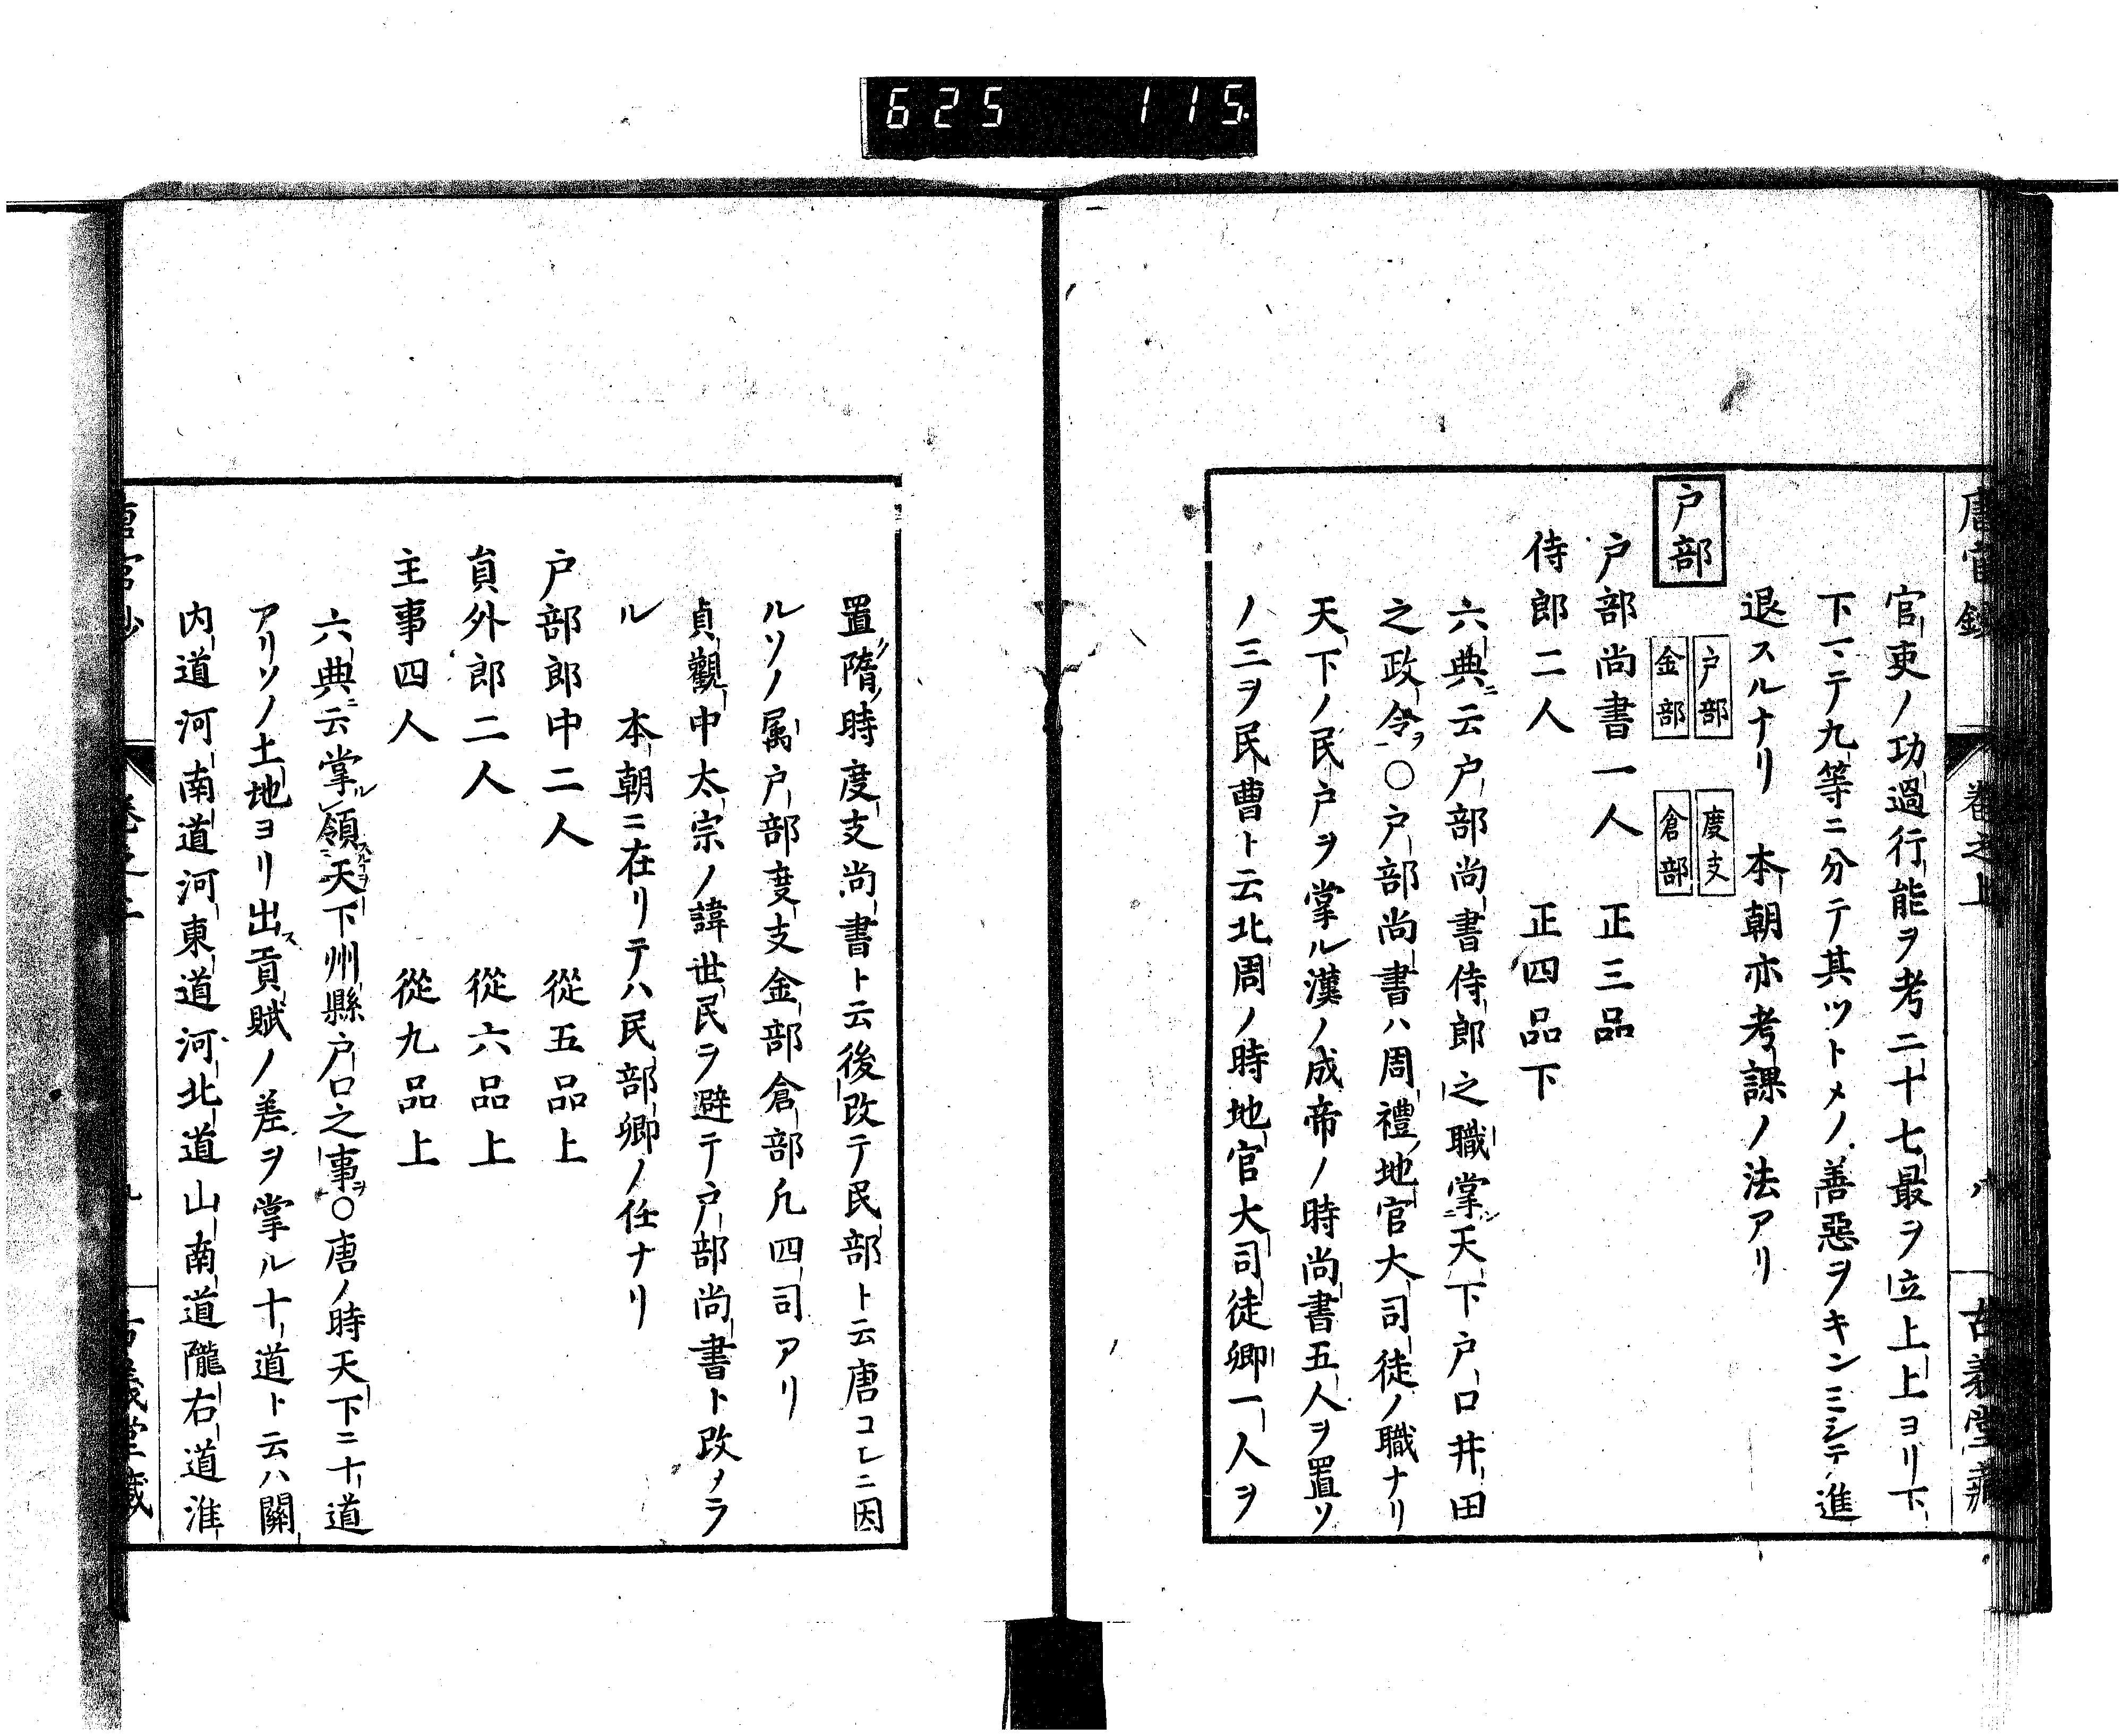 625 115
唐官鈔 卷之上 八 古義堂藏
官吏ノ功過行能ヲ考二十七最ヲ立上上ヨリ下
下マテ九等ニ分テ其ツトメノ善惡ヲキンミシテ進
退スルナリ 本朝亦考課ノ法アリ
戸部
戸部 度支
金部 倉部
戸部尚書一人 正三品
侍郎二人 正四品下
六典ニ云戸部尚書侍郎之職掌天下戸口井田
之政令ヲ○戸部尚書ハ周禮ノ地官大司徒ノ職ナリ
天下ノ民戸ヲ掌ル漢ノ成帝ノ時尚書五人ヲ置ソ
ノ三ヲ民曹ト云北周ノ時地官大司徒卿一人ヲ
置隋ノ時度支尚書ト云後改テ民部ト云唐コレニ因
ルソノ属戸部度支金部倉部凡四司アリ
貞觀中太宗ノ諱世民ヲ避テ戸部尚書ト改メラ
ル 本朝ニ在リテハ民部卿ノ任ナリ
戸部郎中二人 從五品上
員外郎二人 從六品上
主事四人 從九品上
六典ニ云掌ル領スルヿヲ天下州縣戸口之事ヲ○唐ノ時天下ニ十道
アリソノ土地ヨリ出ス貢賦ノ差ヲ掌ル十道ト云ハ關
内道河南道河東道河北道山南道隴右道淮
唐官鈔 卷之上 九 古義堂藏